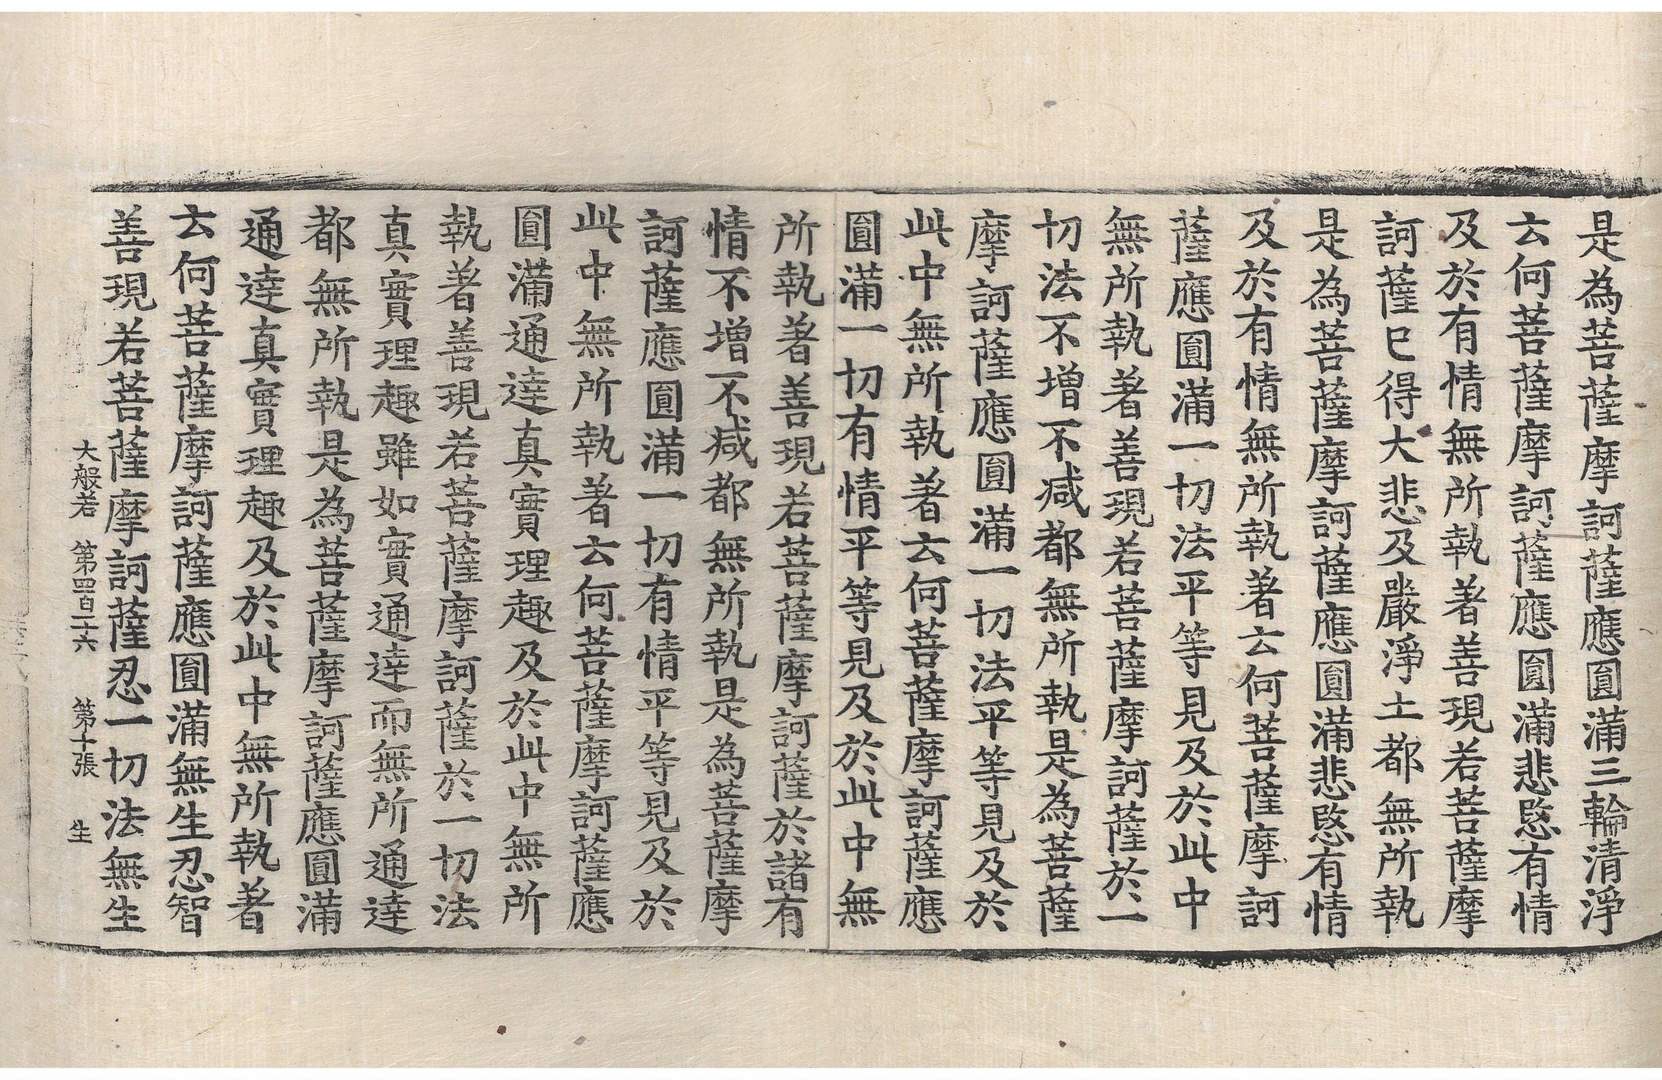 是為菩薩摩訶薩應圓滿三輪清淨
云何菩薩摩訶薩應圓滿悲愍有情
及於有情無所執著善現若菩薩摩
訶薩已得大悲及嚴淨土都無所執
是為菩薩摩訶薩應圓滿悲愍有情
及於有情無所執著云何菩薩摩訶
薩應圓滿一切法平等見及於此中
無所執著善現若菩薩摩訶薩於一
切法不增不减都無所執是為菩薩
摩訶薩應圓滿一切法平等見及於
此中無所執著云何菩薩摩訶薩應
圓滿一切有情平等見及於此中無
所執著善現若菩薩摩訶薩於諸有
情不增不减都無所執是為菩薩摩
訶薩應圓滿一切有情平等見及於
此中無所執著云何菩薩摩訶薩應
圓滿通達真實理趣及於此中無所
執著善現若菩薩摩訶薩於一切法
真實理趣雖如實通達而無所通達
都無所執是為菩薩摩訶薩應圓滿
通達真實理趣及於此中無所執著
云何菩薩摩訶薩應圓滿無生忍智
善現若菩薩摩訶薩忍一切法無生
大般若 第四百一十六 第十張 生